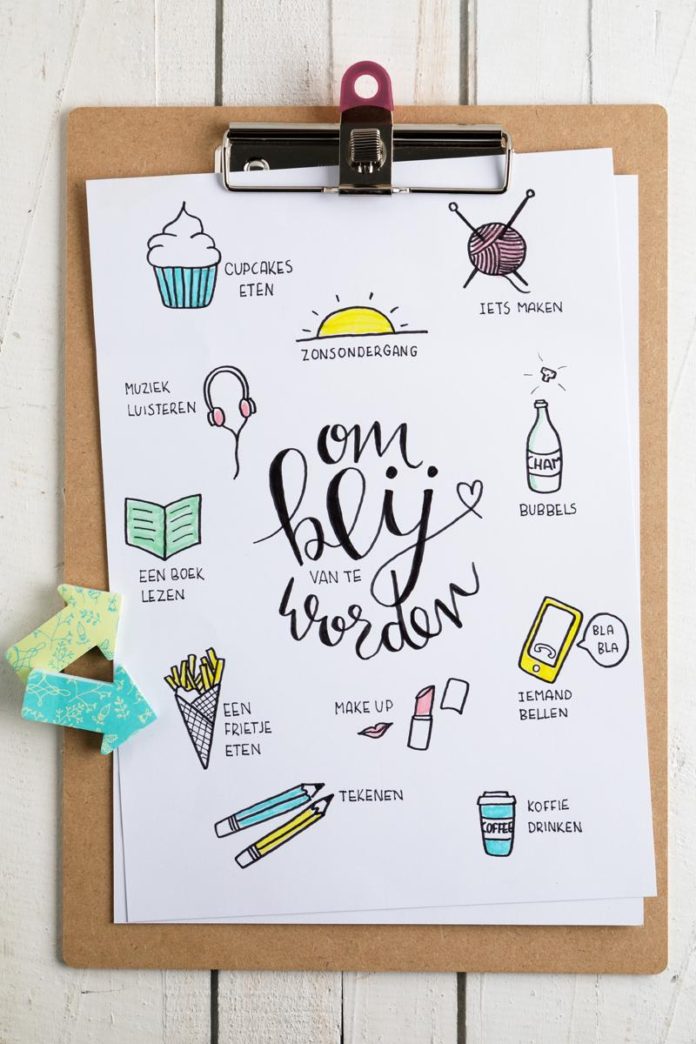 CUPCAKES
ETEN
IETS MAKEN
ZONSONDERGANG
MUZIEK
LUISTEREN
om
blij
VAN TE
worden
CHAM
BUBBELS
EEN BOEK
LEZEN
BLA
BLA
IEMAND
BELLEN
EEN
FRIETJE
ETEN
MAKE UP
TEKENEN
COFFEE
KOFFIE
DRINKEN